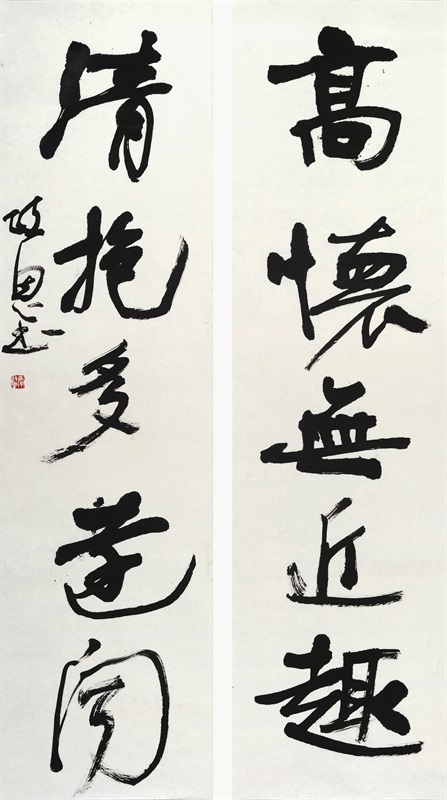 高懷無近趣
清抱多遠聞